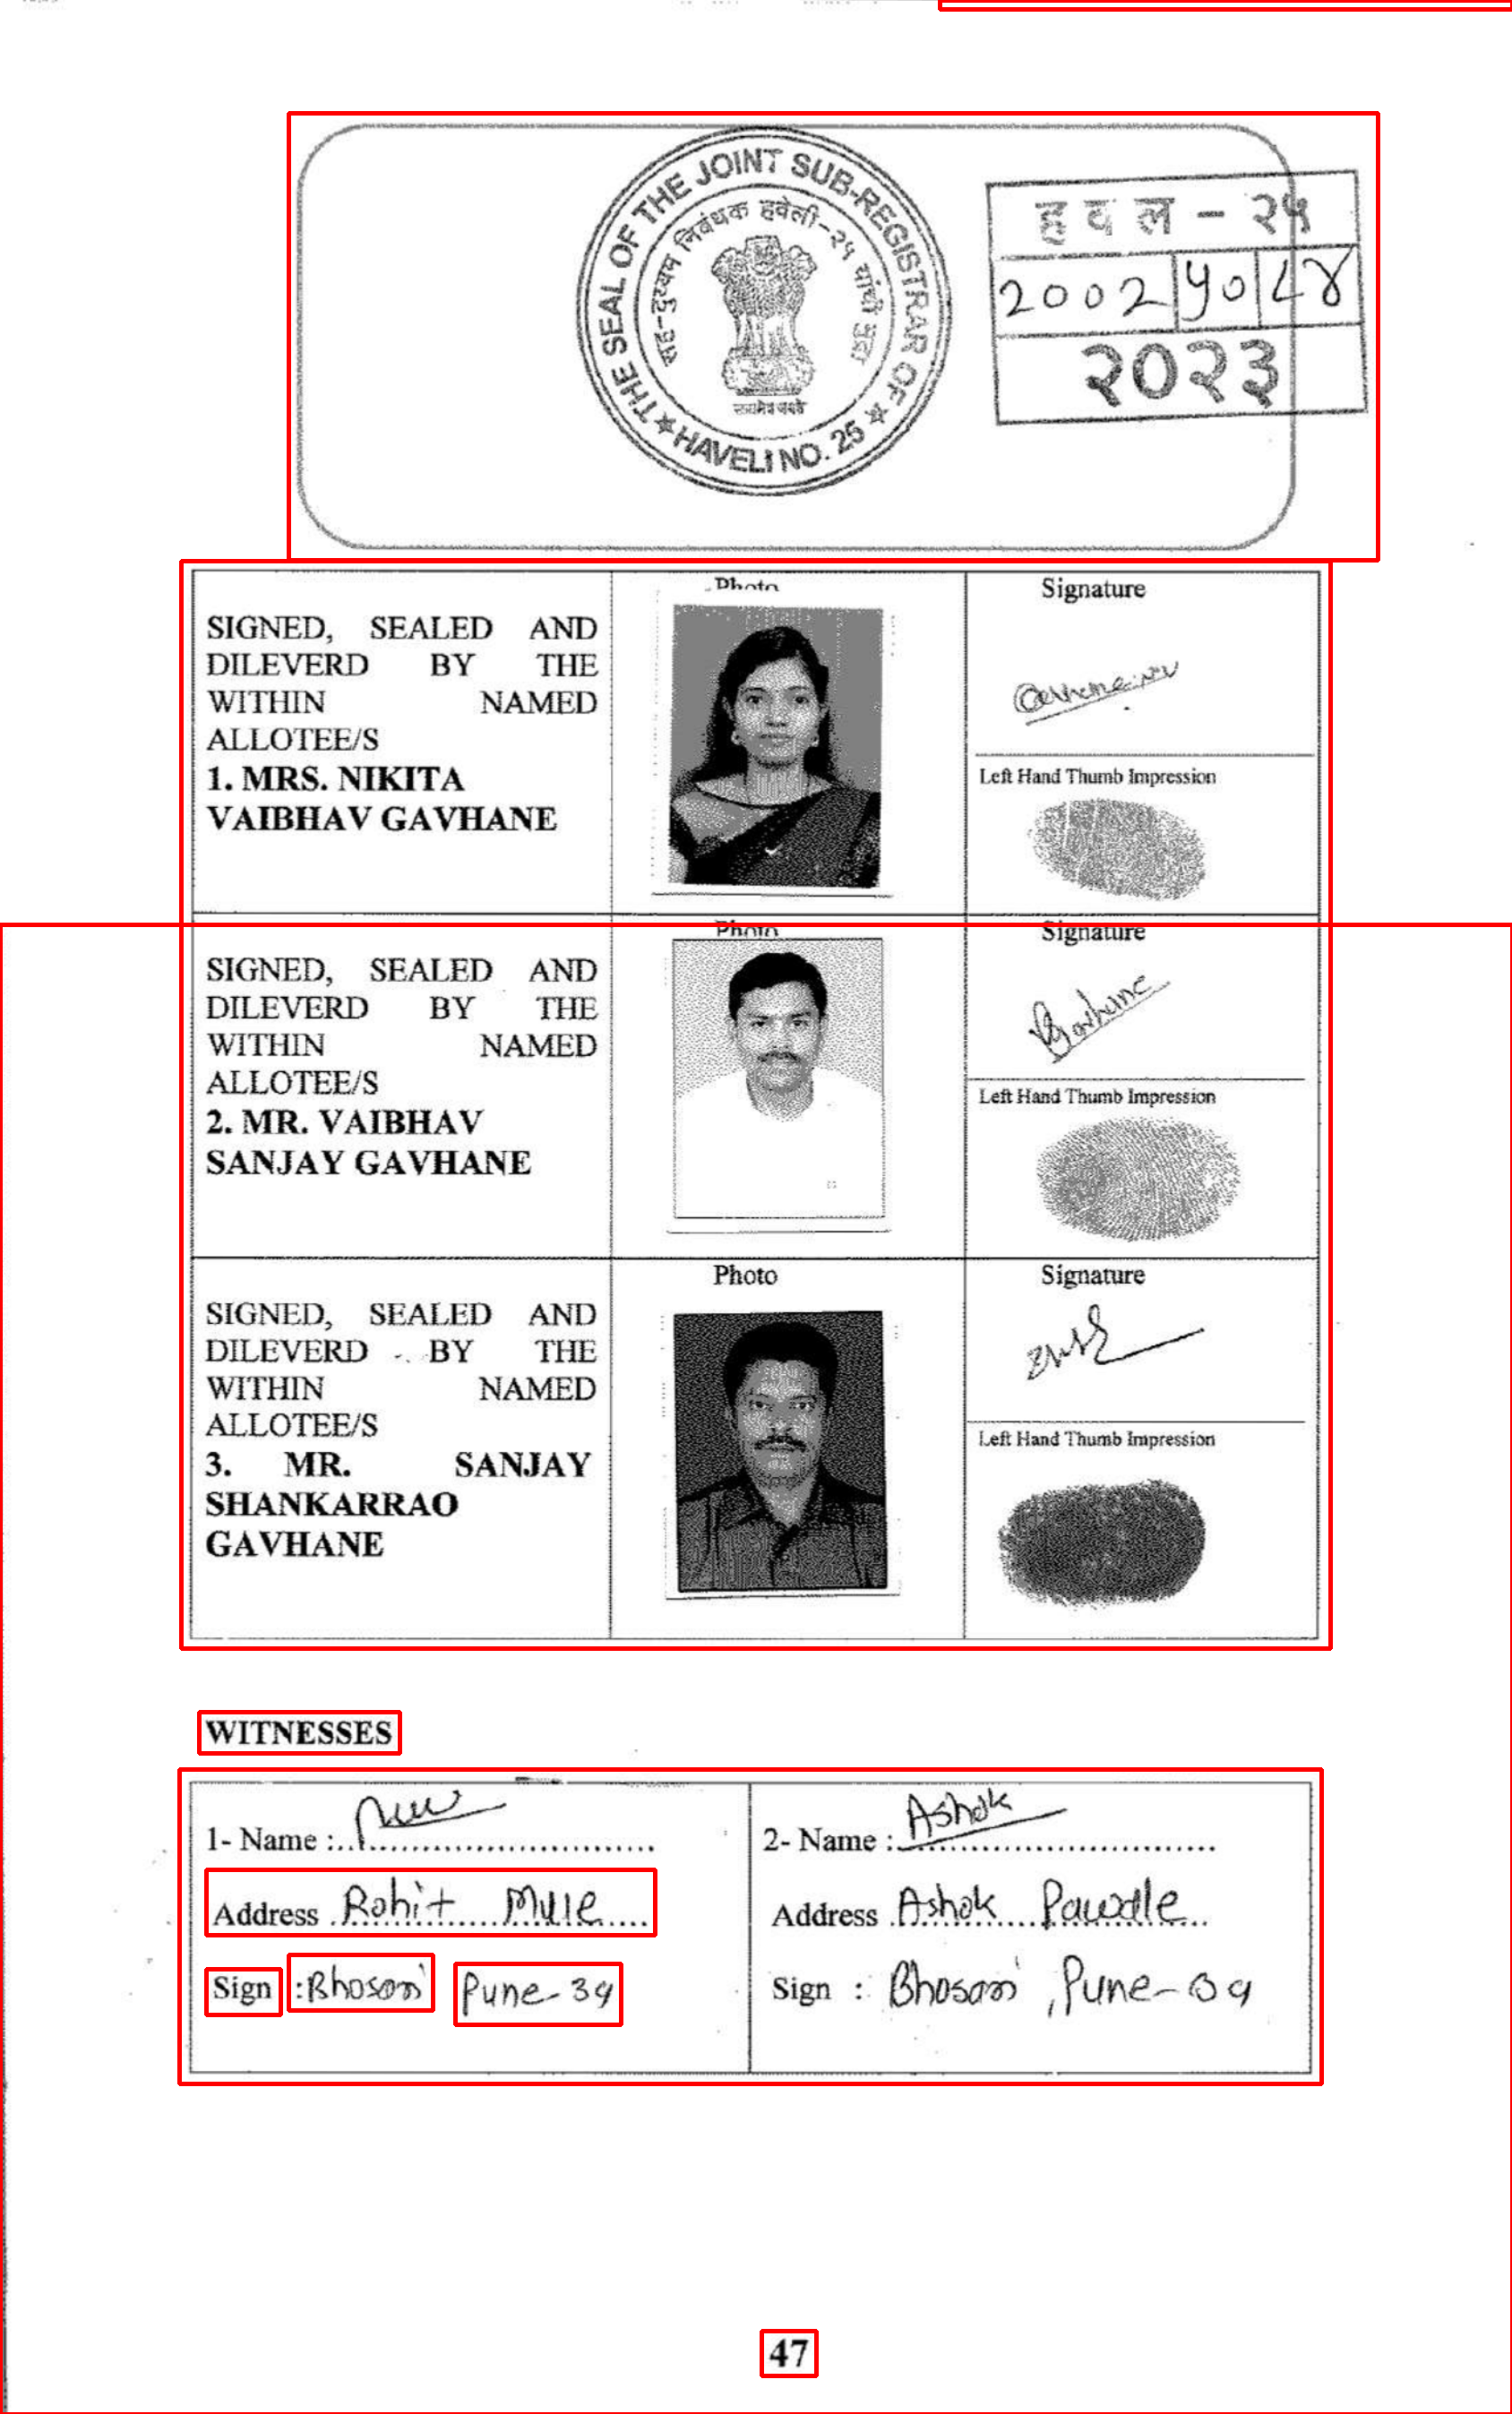 THE SEAL OF THE JOINT SUB-REGISTRAR OF
HAVELI NO. 25
सह-दुय्यम निबंधक हवेली-२५ यांची मुद्रा
सत्यमेव जयते
ह व ल - २५
2002 40 L४
२०२३
Photo
Signature
SIGNED, SEALED AND
DILEVERD BY THE
WITHIN NAMED
ALLOTEE/S
1. MRS. NIKITA
VAIBHAV GAVHANE
Left Hand Thumb Impression
Photo
Signature
Gavhane
SIGNED, SEALED AND
DILEVERD BY THE
WITHIN NAMED
ALLOTEE/S
2. MR. VAIBHAV
SANJAY GAVHANE
Left Hand Thumb Impression
Photo
Signature
SIGNED, SEALED AND
DILEVERD BY THE
WITHIN NAMED
ALLOTEE/S
3. MR. SANJAY
SHANKARRAO
GAVHANE
Left Hand Thumb Impression
WITNESSES
1- Name :
Address Rohit Mule
Sign : Bhosari Pune-39
2- Name : Ashok
Address Ashok Pawale
Sign : Bhosari, Pune-39
47